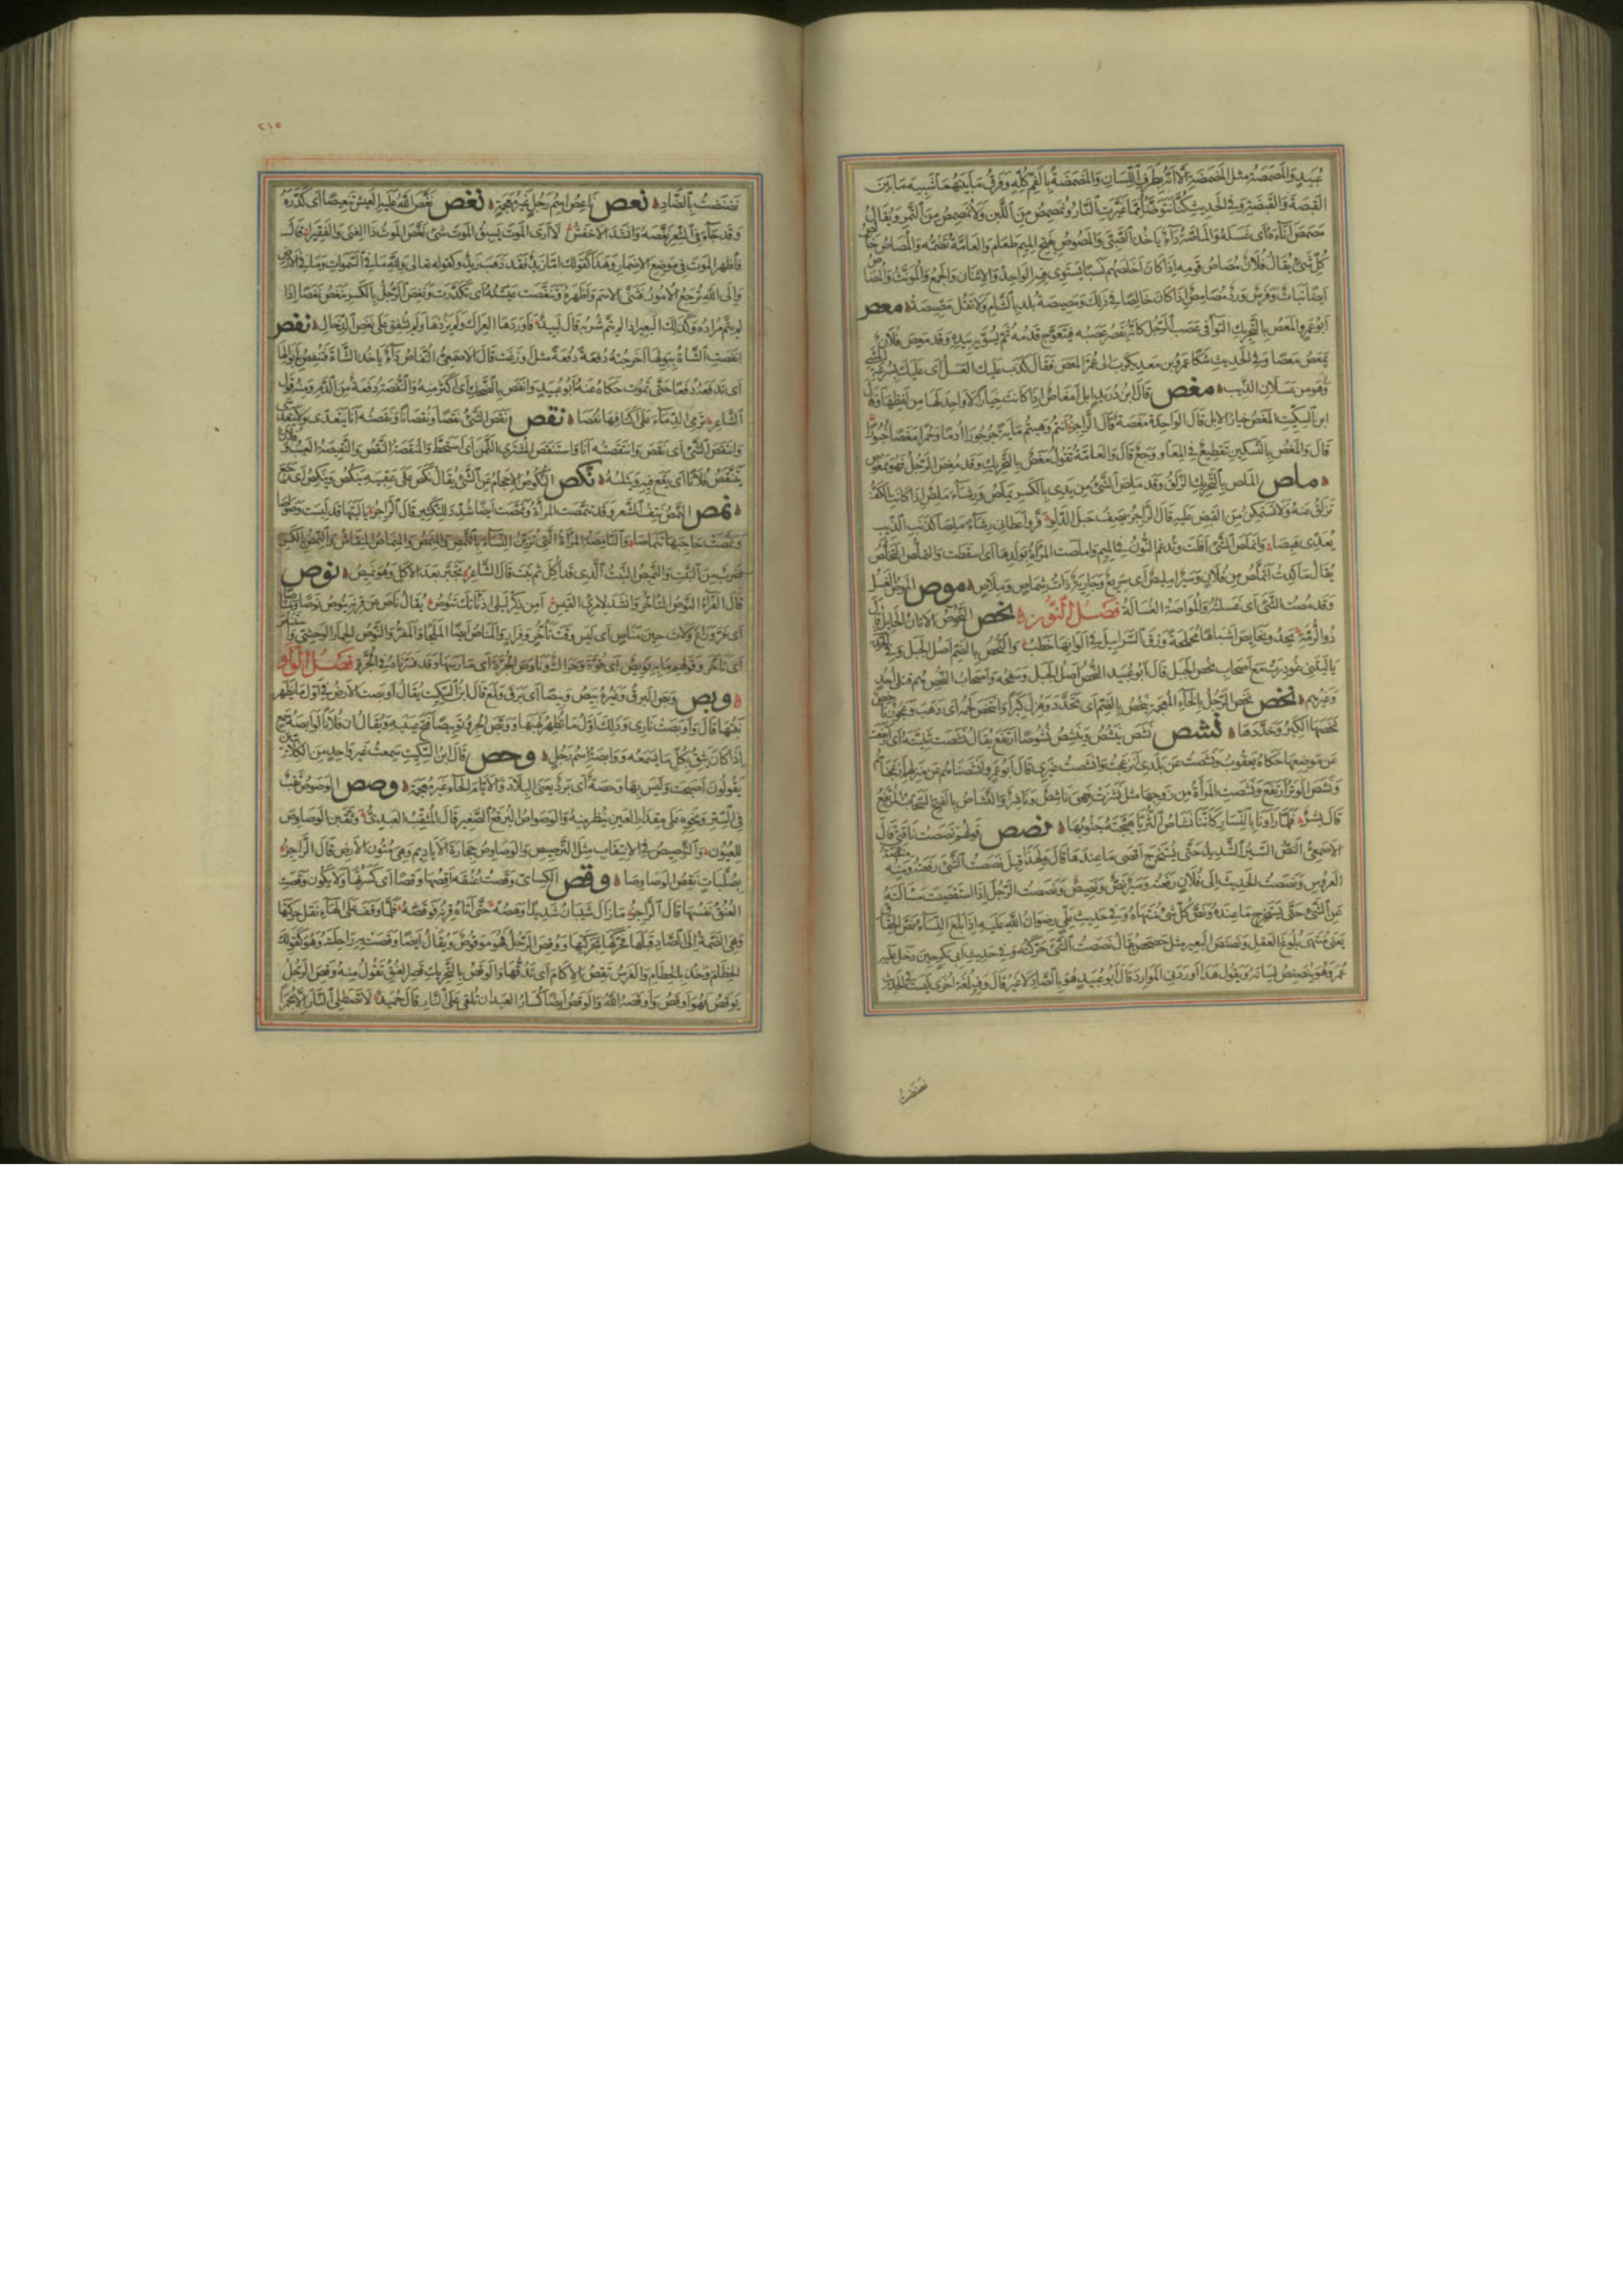 عبيد والمصمصة مثل المضمضة الا انه بطرف اللسان والمضمضة بالفم كله وفرق ما بينهما شبيه ما بين
القبصة والقبضة وفي الحديث كنا نتوضأ مما غيرت النار ونمصمص من اللبن ولا نمصمص من التمر ويقال
مصمص اناءه اى غسله والماصة داء ياخذ الصبي والمصوص بفتح الميم طعام والعامة تضمه والمصاص خالص
كل شئ يقال فلان مصاص قومه اذا كان اخلصهم نسبا يستوي فيه الواحد والاثنان والجمع والمؤنث والمصاص
ايضا نبات وفرس ورد مصامص اذا كان خالصا في ذلك ومصيصة بلد بالشام ولا تقل مصيصة ۞ معص
ابو عمرو المعص بالتحريك التواء في عصب الرجل كانه يقصر عصبه فتتعوج قدمه ثم يسويه بيده وقد معص فلان
يمعص معصا وفي الحديث شكا عمرو بن معديكرب الى عمر المعص فقال كذب عليك العسل اى عليك بسرعة المشي
وهو من عسلان الذيب ۞ مغص قال ابن دريد ابل امغاص اذا كانت خيارا لا واحد لها من لفظها وقال
ابن السكيت المغص خيار الابل قال الواحدة مغصة قال الراجز انتم وهبتم مائة جرجورا ادما وحمرا مغصا خبورا
قال والمغص بالتسكين تقطيع في المعا ووجع قال والعامة تقول مغص بالتحريك وقد مغص الرجل فهو ممغوص
۞ ملص الملص بالتحريك الزلق وقد ملص الشئ من يدى بالكسر يملص ورشاء ملص اذا كانت الكف
تزلق عنه ولا تستمكن من القبض عليه قال الراجز يصف حبل الدلو فر واعطاني رشاء ملصا كذنب الذيب
يعدى هبصا وانملص الشئ افلت وتدغم النون في الميم واملصت المرأة بولدها اى اسقطت والتملص التخلص
يقال ما كدت اتملص من فلان وسير امليص اى سريع وجارية ذات شماص وملاص ۞ موص الموص الغسل
وقد مصت الشئ اى غسلته والمواصة الغسالة فصل النون ۞ نحص النحوص الاتان الحايل قال
ذو الرمة
يا ليتني غودرت مع اصحاب نحص الجبل قال ابو عبيد النحص اصل الجبل وسفحه واصحاب النحص هم قتلى احد
وغيرهم ۞ نخص نخص الرجل بالخاء المعجمة ينخص بالضم اى تخدد وهزل كبرا وانتخص لحمه اى ذهب وعجوز ناخص
نخصها الكبر وخددها ۞ نشص نشص ينشص وينشص نشوصا ارتفع يقال نشصت ثنيته اى ارتفعت
عن موضعها حكاه يعقوب ونشصت عن بلدى انزعجت وانشصت غيرى قال ابو عمرو وانشصناهم عن منزلهم ازعجناهم
ونشص الوبر ارتفع ونشصت المرأة من زوجها مثل نشزت فهي ناشص وناشز والنشاص بالفتح السحاب المرتفع
قال بشر فلما راونا بالنسار كاننا نشاص الثريا هيجته جنوبها ۞ نصص قولهم نصصت ناقتي قال
الاصمعي النص السير الشديد حتى يستخرج اقصى ما عندها قال ولهذا قيل نصصت الشئ رفعته ومنه منصة
العروس ونصصت الحديث الى فلان رفعته وسير نص ونصيص ونصصت الرجل اذا استقصيت مسالته
عن الشئ حتى تستخرج ما عنده ونص كل شئ منتهاه وفي حديث علي رضوان الله عليه اذا بلغ النساء نص الحقاق
يعنى منتهى بلوغ العقل ونصنص البعير مثل حصحص يقال نصنصت الشئ حركته وفي حديث ابي بكر حين دخل عليه
عمر وهو ينصنص لسانه ويقول هذا اوردني الموارد قال ابو عبيد هو بالصاد لا غير قال وفيه لغة اخرى ليست في الحديث
نضنضت
٢١٥
نضنضت بالضاد ۞ نعص ناعص اسم رجل غير معجمة ۞ نغص نغص الله عليه العيش تنغيصا اى كدره
وقد جاء في الشعر نغصه وانشد الاخفش لا ارى الموت يسبق الموت شئ نغص الموت ذا الغنى والفقيرا قال
فاظهر الموت في موضع الاضمار وهذا كقولك اما زيد فقد ذهب زيد وكقوله تعالى ولله ما في السموات وما في الارض
والى الله ترجع الامور فثنى الاسم واظهره وتنغصت عيشته اى تكدرت ونغص الرجل بالكسر ينغص نغصا اذا
لم يتم مراده وكذلك البعير اذا لم يتم شربه قال لبيد فاوردها العراك ولم يذدها ولم يشفق على نغص الدخال ۞ نفص
انفصت الشاة ببولها اخرجته دفعة دفعة مثل وزعت قال الاصمعي النفاص داء ياخذ الشاة فتنفص بابوالها
اى تدفعه دفعا حتى تموت حكاه عنه ابو عبيد وانفص بالضحك اى اكثر منه والنفصة دفعة من الدم ومنه قول
الشاعر ترمي الدماء على اكتافها نفصا ۞ نقص نقص الشئ نقصا ونقصانا ونقصته انا يتعدى ولا يتعدى
وانتقص الشئ اى نقص وانتقصته انا واستنقص المشترى الثمن اى استحط والمنقصة النقص والنقيصة العيب وفلان
يتنقص فلانا اى يقع فيه ويثلبه ۞ نكص النكوص الاحجام عن الشئ يقال نكص على عقبيه ينكص وينكص اى رجع
۞ نمص النمص نتف الشعر وقد تنمصت المرأة ونمصت ايضا شدد للتكثير قال الراجز يا ليتها قد لبست وصواصا
ونمصت حاجبها تنماصا والنامصة المرأة التي تزين النساء بالنمص والمنمص والمنماص المنقاش والنمص بالكسر
ضرب من النبت والنميص النبت الذي قد اكل ثم نبت قال الشاعر تجبر بعد الاكل وهو نميص ۞ نوص
قال الفراء النوص التاخر وانشد لامرئ القيس امن ذكر ليلى اذ ناتك تنوص يقال ناص عن قرنه ينوص نوصا ومناصا
اى فر وراغ ولات حين مناص اى ليس وقت تاخر وفرار والمناص ايضا الملجا والمفر والنوص الحمار الوحشي واستناص
اى تاخر وقولهم ما به نويص اى قوة وحراك وناوص الجرة اى مارسها وقد فسرناه في الجرة فصل الواو
۞ وبص وبص البرق وغيره يبص وبيصا اى برق ولمع قال ابن السكيت يقال اوبصت الارض في اول ما يظهر
نبتها قال واوبصت ناري وذلك اول ما يظهر لهبها ووبص الجرو توبيصا فتح عينيه ويقال ان فلانا لوابصة سمع
اذا كان يثق بكل ما يسمعه ووابصة اسم رجل ۞ وحص قال ابن السكيت سمعت غير واحد من الكلابيين
يقولون اصبحت وليس بها وحصة اى برد يعنى البلاد والايام الحاء غير معجمة ۞ وصص الوصوص ثقب
في الستر ونحوه على مقدار العين ينظر منه والوصواص البرقع الصغير قال المثقب العبدي وثقبن الوصاوص
للعيون والتوصيص في الانتقاب مثل الترصيص والوصاوص حجارة الاياديم وهي متون الارض قال الراجز
بصلبات تقص الوصاوصا ۞ وقص الكسائي وقصت عنقه اقصها وقصا اى كسرتها ولا يكون وقصت
العنق نفسها قال الراجز ما زال شيبان شديدا وهصه حتى اتاه قرنه فوقصه فلما وقف على الهاء نقل حركتها
وهي الضمة الى الصاد قبلها فحركها بحركتها ووقص الرجل فهو موقوص ويقال ايضا وقصت به راحلته وهو كقولك
خذ الخطام وخذ بالخطام والفرس تقص الاكام اى تدقها والوقص بالتحريك قصر العنق تقول منه وقص الرجل
يوقص فهو اوقص واوقصه الله والوقص ايضا كسار العيدان تلقى على النار قال حميد لا تصطلى النار الا مجمرا